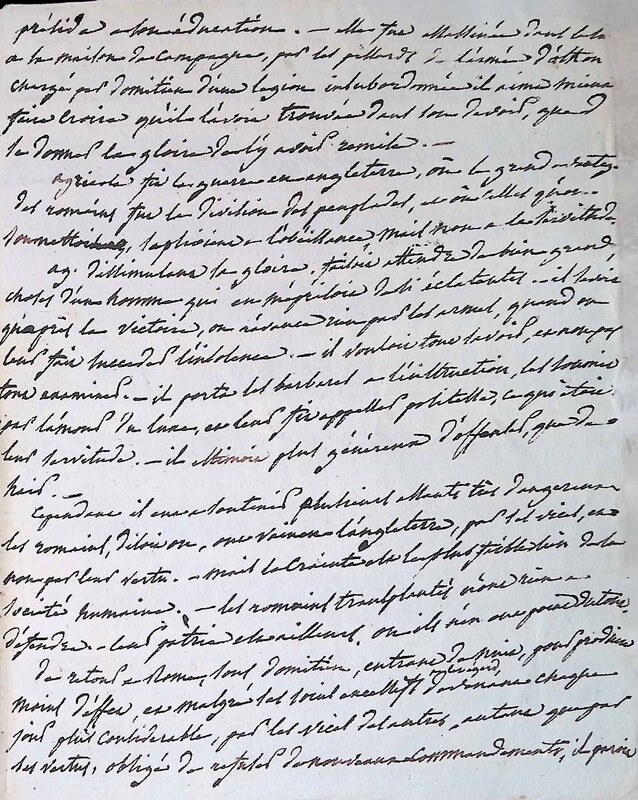 présida a son éducation. — elle fut assassinée dans
a la maison de campagne, par les pillards de l'armée d'othon
chargé par domitien d'une legion insubordonnée il aima mieux
faire croire qu'il l'avoit trouvée dans son devoir, quand
se donner la gloire de l'y avoir remise. —
agricola fit la guerre en angleterre, où le grand
des romains fut la division des peuplades, et où celles qu'on
soumettoit, se plioient a l'obéissance mais non a la servitude.
ag. dissimulant sa gloire, faisoit attendre de bien grandes
choses d'un homme qui en méprisoit de si éclatantes. — il savoit
qu'après la victoire, on n'avance rien par les armes, quand on
leur fait succeder l'insolence. — il vouloit tout savoir, et non pas
tout examiner. — il porta les barbares a l'instruction, les soumit
par l'amour du luxe, et leur fit appeller politesse, ce qui étoit
leur servitude. — il estimoit plus généreux d'offenser, que de
haïr. —
Cependant il eut a soutenir plusieurs assauts très dangereux
les romains, disoit on, ont vaincu l'angleterre, par les vices, et
non par leur vertu. — mais la Crainte est le plus foible lien de la
société humaine. — les romains transplantés n'ont rien a
défendre. — leur patrie est ailleurs, ou ils n'en ont point du tout.
de retour a Rome, sous domitien, entrant de nuit, pour produire
moins d'effet, et malgré les soins excessifs devenant chaque
jour plus considérable, par les vices des autres, autant que par
ses vertus, obligé de refuser de nouveaux commandements, il